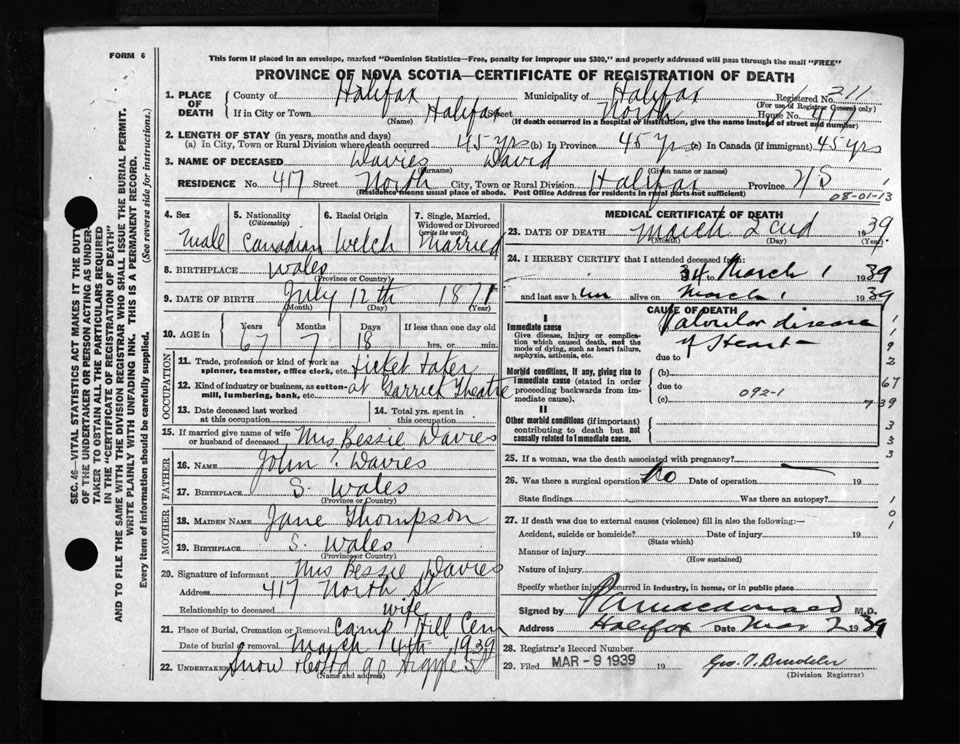 FORM 6
This form if placed in an envelope, marked "Dominion Statistics—Free, penalty for improper use $300," and properly addressed will pass through the mail "FREE"
PROVINCE OF NOVA SCOTIA—CERTIFICATE OF REGISTRATION OF DEATH
1. PLACE OF DEATH County of Halifax Municipality of Halifax Registered No. 211
(For use of Registrar General only)
If in City or Town Halifax Street North House No. 417
(Name) (If death occurred in a hospital or institution, give the name instead of street and number)
2. LENGTH OF STAY (in years, months and days)
(a) In City, Town or Rural Division where death occurred 45 yrs (b) In Province 45 yrs (c) In Canada (if immigrant) 45 yrs
3. NAME OF DECEASED Davies David
(Surname) (Given name or names)
RESIDENCE No. 417 Street North City, Town or Rural Division Halifax Province NS
(Residence means usual place of abode. Post Office Address for residents in rural parts not sufficient)
08-01-13
4. Sex Male
5. Nationality (Citizenship) Canadian
6. Racial Origin Welch
7. Single, Married, Widowed or Divorced (write the word) Married
8. BIRTHPLACE Wales
(Province or Country)
9. DATE OF BIRTH July 12th 1871
(Month) (Day) (Year)
10. AGE in Years 67 Months 7 Days 18 If less than one day old
hrs. or min.
OCCUPATION
11. Trade, profession or kind of work as spinner, teamster, office clerk, etc. Ticket taker
12. Kind of industry or business, as cotton-mill, lumbering, bank, etc. at Garrick Theatre
13. Date deceased last worked at this occupation
14. Total yrs. spent in this occupation
15. If married give name of wife or husband of deceased Mrs Bessie Davies
FATHER
16. NAME John T. Davies
17. BIRTHPLACE S. Wales
(Province or Country)
MOTHER
18. MAIDEN NAME Jane Thompson
19. BIRTHPLACE S. Wales
(Province or Country)
20. Signature of informant Mrs Bessie Davies
Address 417 North St
Relationship to deceased wife
21. Place of Burial, Cremation or Removal Camp Hill Cem
Date of burial or removal March 4th 1939
22. Undertaker Snow & Co Ltd 90 Argyle St
(Name and address)
MEDICAL CERTIFICATE OF DEATH
23. DATE OF DEATH March 2cnd 1939
(Month) (Day) (Year)
24. I HEREBY CERTIFY that I attended deceased from:
to March 1 1939
and last saw him alive on March 1 1939
CAUSE OF DEATH
I
Immediate cause Valvular disease of Heart
Give disease, injury or complication which caused death, not the mode of dying, such as heart failure, asphyxia, asthenia, etc.
due to
Morbid conditions, if any, giving rise to immediate cause (stated in order proceeding backwards from immediate cause).
(b)
due to 092-1
(c)
II
Other morbid conditions (if important) contributing to death but not causally related to immediate cause.
1
1
9
2
67
7-39
3
3
3
25. If a woman, was the death associated with pregnancy?
26. Was there a surgical operation? No Date of operation 19
State findings Was there an autopsy?
1
0
1
27. If death was due to external causes (violence) fill in also the following:—
Accident, suicide or homicide? Date of injury 19
(State which)
Manner of injury
(How sustained)
Nature of injury
Specify whether injury occurred in industry, in home, or in public place
Signed by M.D.
Address Halifax Date Mar 2 1939
28. Registrar's Record Number
29. Filed MAR - 9 1939 19
(Division Registrar)
SEC. 46—VITAL STATISTICS ACT MAKES IT THE DUTY
OF THE UNDERTAKER OR PERSON ACTING AS UNDER-
TAKER TO OBTAIN ALL THE PARTICULARS REQUIRED
IN THE "CERTIFICATE OF REGISTRATION OF DEATH"
AND TO FILE THE SAME WITH THE DIVISION REGISTRAR WHO SHALL ISSUE THE BURIAL PERMIT.
WRITE PLAINLY WITH UNFADING INK. THIS IS A PERMANENT RECORD.
Every item of information should be carefully supplied. (See reverse side for instructions.)